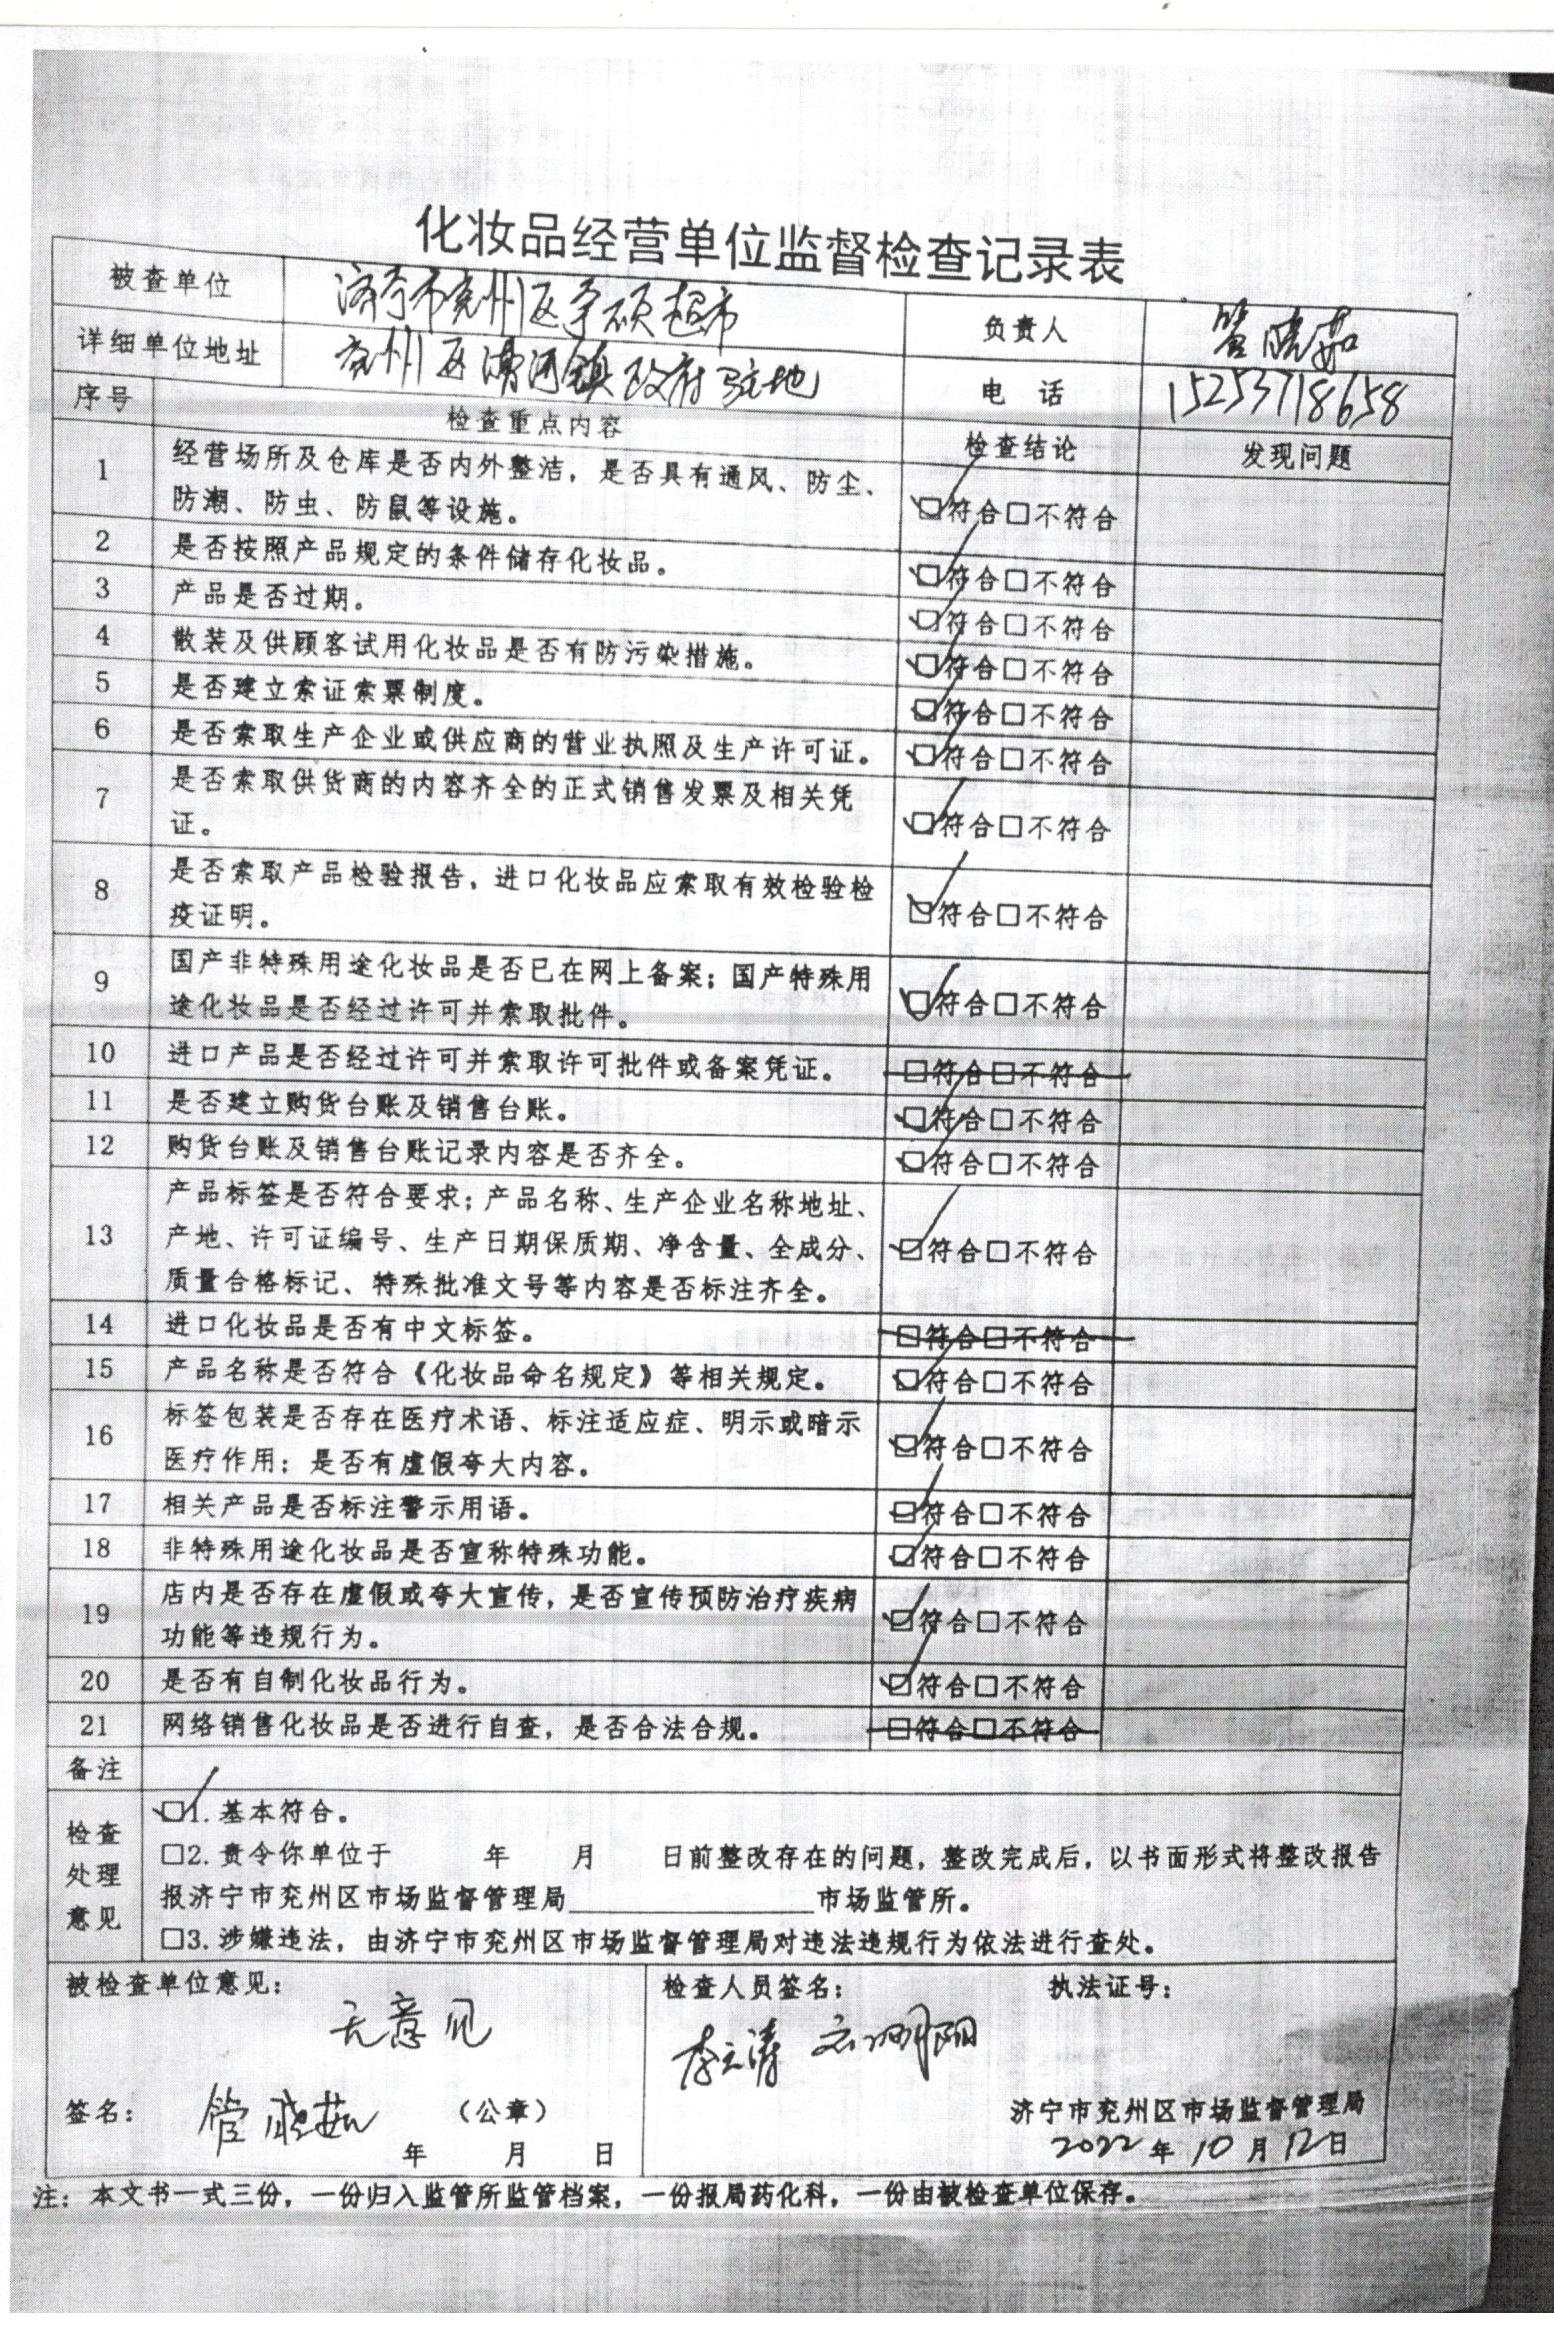 化妆品经营单位监督检查记录表
被查单位 济宁市兖州区 超市 负责人 管晓茹
详细单位地址 兖州区漕河镇政府驻地 电 话 15253718658
序号 检查重点内容 检查结论 发现问题
1 经营场所及仓库是否内外整洁，是否具有通风、防尘、
防潮、防虫、防鼠等设施。 ☑符合□不符合
2 是否按照产品规定的条件储存化妆品。 ☑符合□不符合
3 产品是否过期。 ☑符合□不符合
4 散装及供顾客试用化妆品是否有防污染措施。 ☑符合□不符合
5 是否建立索证索票制度。 ☑符合□不符合
6 是否索取生产企业或供应商的营业执照及生产许可证。 ☑符合□不符合
7 是否索取供货商的内容齐全的正式销售发票及相关凭
证。 ☑符合□不符合
8 是否索取产品检验报告，进口化妆品应索取有效检验检
疫证明。 ☑符合□不符合
9 国产非特殊用途化妆品是否已在网上备案；国产特殊用
途化妆品是否经过许可并索取批件。 ☑符合□不符合
10 进口产品是否经过许可并索取许可批件或备案凭证。 □符合□不符合
11 是否建立购货台账及销售台账。 ☑符合□不符合
12 购货台账及销售台账记录内容是否齐全。 ☑符合□不符合
13 产品标签是否符合要求；产品名称、生产企业名称地址、
产地、许可证编号、生产日期保质期、净含量、全成分、
质量合格标记、特殊批准文号等内容是否标注齐全。 ☑符合□不符合
14 进口化妆品是否有中文标签。 □符合□不符合
15 产品名称是否符合《化妆品命名规定》等相关规定。 ☑符合□不符合
16 标签包装是否存在医疗术语、标注适应症、明示或暗示
医疗作用；是否有虚假夸大内容。 ☑符合□不符合
17 相关产品是否标注警示用语。 ☑符合□不符合
18 非特殊用途化妆品是否宣称特殊功能。 ☑符合□不符合
19 店内是否存在虚假或夸大宣传，是否宣传预防治疗疾病
功能等违规行为。 ☑符合□不符合
20 是否有自制化妆品行为。 ☑符合□不符合
21 网络销售化妆品是否进行自查，是否合法合规。 □符合□不符合
备注
检查处理意见
☑1.基本符合。
□2.责令你单位于 年 月 日前整改存在的问题，整改完成后，以书面形式将整改报告
报济宁市兖州区市场监督管理局________市场监管所。
□3.涉嫌违法，由济宁市兖州区市场监督管理局对违法违规行为依法进行查处。
被检查单位意见： 检查人员签名： 执法证号：
无意见
李云涛 明阳
签名： 管晓茹 （公章） 济宁市兖州区市场监督管理局
年 月 日 2022年10月12日
注：本文书一式三份，一份归入监管所监管档案，一份报局药化科，一份由被检查单位保存。